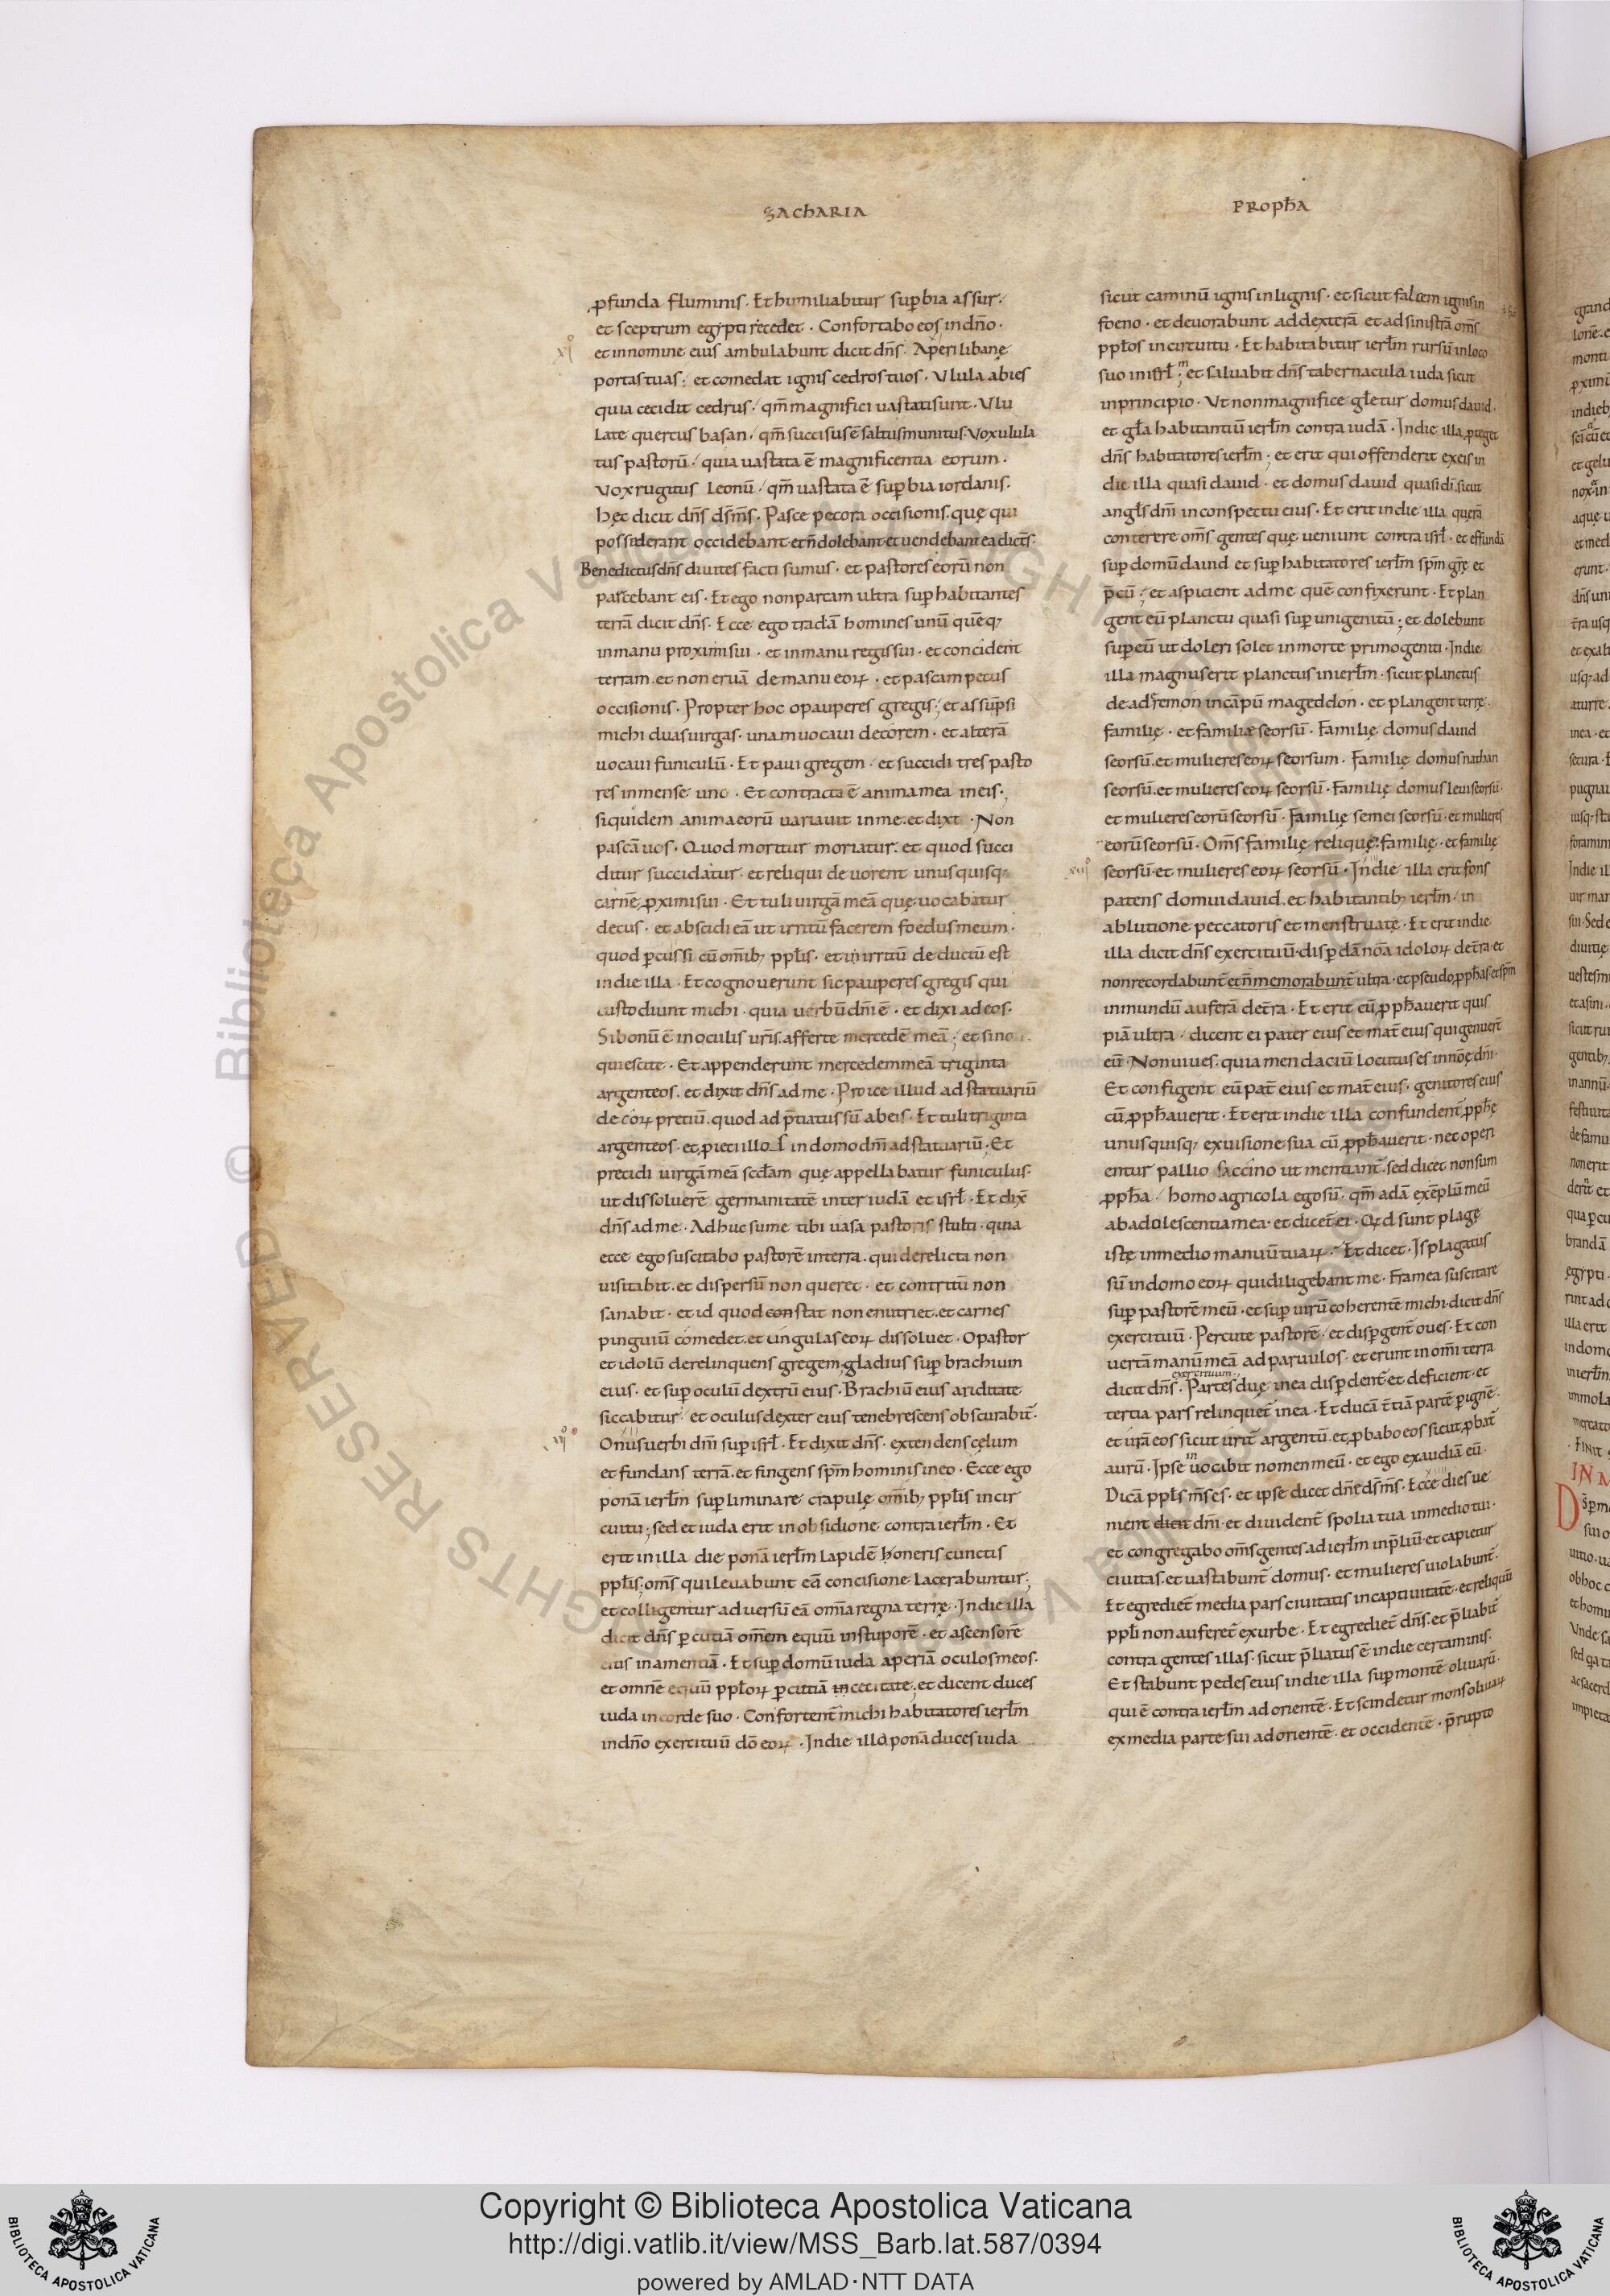 ZACHARIA
PROPHA
ꝓfunda fluminis. Et humiliabitur suꝑbia assur.
et sceptrum egypti recedet. Confortabo eos in dño.
et in nomine eius ambulabunt dicit dñs. Aperi libanę
portas tuas; et comedat ignis cedros tuos. Ulula abies
quia cecidit cedrus; qm̃ magnifici uastati sunt. Ulu
late quercus basan; qm̃ succisus ẽ saltus munitus. Vox ulula
tus pastorũ; quia uastata ẽ magnificentia eorum.
Vox rugitus leonũ; qm̃ uastata ẽ suꝑbia iordanis.
Hęc dicit dñs ds̃ ms̃. Pasce pecora occisionis. quę qui
possiderant occidebant. et ñ dolebant. et uendebant ea dicẽs.
Benedictus dñs diuites facti sumus. et pastores eorũ non
parcebant eis. Et ego non parcam ultra suꝑ habitantes
terrã dicit dñs. Ecce ego tradã homines unũ quẽq;
in manu proximi sui. et in manu regis sui. et concident
terram. et non eruã de manu eoꝝ. et pascam pecus
occisionis. Propter hoc o pauperes gregis; et assũpsi
michi duas uirgas. unam uocaui decorem. et alterã
uocaui funiculũ. Et paui gregem. et succidi tres pasto
res in mense uno. Et contracta ẽ anima mea in eis;
siquidem anima eorũ uariauit in me. et dixi. Non
pascã uos. Quod moritur moriatur. et quod succi
ditur succidatur. et reliqui deuorent unusquisq;
carnẽ ꝓximi sui. Et tuli uirgã meã quę uocabatur
decus. et abscidi eã ut irritũ facerem foedus meum.
quod ꝑcussi cũ om̃ib; ppl̃is. et in irritũ deductũ est
in die illa. Et cognouerunt sic pauperes gregis qui
custodiunt michi. quia uerbũ dñi ẽ. et dixi ad eos.
Si bonũ ẽ in oculis ur̃is. afferte mercedẽ meã; et si non.
quiescite. Et appenderunt mercedem meã triginta
argenteos. et dixit dñs ad me. Proice illud ad statuariũ
decoꝝ pretiũ. quod adp̃tiatus sũ ab eis. Et tuli triginta
argenteos. et ꝓieci illos in domo dñi ad statuariũ; Et
precidi uirgã meã scd̃am quę appellabatur funiculus.
ut dissoluerẽ germanitatẽ inter iudã et isrl̃. Et dix̃
dñs ad me. Adhuc sume tibi uasa pastoris stulti. quia
ecce ego suscitabo pastorẽ in terra. qui derelicta non
uisitabit. et dispersũ non queret. et contritũ non
sanabit. et id quod constat non enutriet. et carnes
pinguiũ comedet. et ungulas eoꝝ dissoluet. O pastor
et idolũ derelinquens gregem; gladius suꝑ brachium
eius. et suꝑ oculũ dextrũ eius. Brachiũ eius ariditate
siccabitur. et oculus dexter eius tenebrescens obscurabit̃.
Onus uerbi dñi suꝑ isrl̃. Et dixit dñs. extendens cęlum
et fundans terrã. et fingens sp̃m hominis in eo. Ecce ego
ponã ierl̃m suꝑliminare crapulę om̃ib; ppl̃is in cir
cuitu; sed et iuda erit in obsidione contra ierl̃m. Et
erit in illa die ponã ierl̃m lapidẽ honeris cunctis
ppl̃is; om̃s qui leuabunt eã concisione lacerabuntur;
et colligentur aduersũ eã om̃ia regna terrę. In die illa
dicit dñs ꝑcutiã om̃em equũ in stuporẽ. et ascensorẽ
eius in amentiã. Et suꝑ domũ iuda aperiã oculos meos.
et omnẽ equũ ppl̃oꝝ ꝑcutiã in cecitate. et dicent duces
iuda in corde suo. Confortent̃ michi habitatores ierl̃m
in dño exercituũ dõ eoꝝ. In die illa ponã duces iuda
sicut caminũ ignis in lignis. et sicut falcem ignis in
foeno. et deuorabunt ad dexterã et ad sinistrã om̃s
ppl̃os in circuitu. Et habitabitur ierl̃m rursũ in loco
suo in isrl̃; et saluabit dñs tabernacula iuda sicut
in principio. Ut non magnifice gl̃etur domus dauid.
et gl̃a habitantiũ ierl̃m contra iudã. In die illa ꝓteget
dñs habitatores ierl̃m; et erit qui offenderit ex eis in
die illa quasi dauid. et domus dauid quasi di. sicut
angl̃s dñi in conspectu eius. Et erit in die illa querã
conterere om̃s gentes quę ueniunt contra isrl̃. et effundã
suꝑ domũ dauid et suꝑ habitatores ierl̃m sp̃m gr̃ę et
p̃cũ; et aspicient ad me quẽ confixerunt. Et plan
gent eũ planctu quasi suꝑ unigenitũ; et dolebunt
suꝑ eũ ut doleri solet in morte primogeniti. In die
illa magnus erit planctus in ierl̃m. sicut planctus
de adremon in cãpũ mageddon. et plangent terrę.
familię. et familiæ seorsũ. Familię domus dauid
seorsũ. et mulieres eoꝝ seorsum. Familię domus nathan
seorsũ. et mulieres eoꝝ seorsũ. Familię domus leui seorsũ.
et mulieres eorũ seorsũ. Familię semei seorsũ. et mulieres
eorũ seorsũ. Om̃s familię reliquę. familię. et familię
seorsũ. et mulieres eoꝝ seorsũ. In die illa erit fons
patens domui dauid. et habitantib; ierl̃m. in
ablutione peccatoris et menstruatę. Et erit in die
illa dicit dñs exercituũ. disꝑdã nõa idoloꝝ de t̃ra. et
non recordabunt̃ et ñ memorabunt̃ ultra. et pseudoꝓphas. et sp̃m
inmundũ auferã de t̃ra. Et erit cũ ꝓpħauerit quis
piã ultra. dicent ei pater eius et mat̃ eius qui genuert̃
eũ. Non uiues. quia mendaciũ locutus es in nõe dñi.
Et configent eũ pat̃ eius et mat̃ eius. genitores eius
cũ ꝓpħauerit. Et erit in die illa confundent̃ ꝓpħę
unusquisq; ex uisione sua cũ ꝓpħauerit. nec operi
entur pallio saccino ut mentiant̃. sed dicet non sum
ꝓpħa. homo agricola ego sũ. qm̃ adã exẽplũ meũ
ab adulescentia mea. et dicet̃ ei. Qd sunt plagę
istę in medio manuũ tuaꝝ. Et dicet. Is plagatus
sũ in domo eoꝝ qui diligebant me. Framea suscitare
suꝑ pastorẽ meũ. et suꝑ uirũ coherentẽ michi. dicit dñs
exercituũ. Percute pastorẽ. et disꝑgent̃ oues. Et con
uertã manũ meã ad paruulos. et erunt in om̃i terra
exercituum.
dicit dñs. Partes duę in ea disꝑdent̃ et deficient. et
tertia pars relinquet̃ in ea. Et ducã t̃tiã partẽ ꝑ ignẽ.
et urã eos sicut urit̃ argentũ. et ꝓbabo eos sicut ꝓbat̃
aurũ. Ipse uocabit nomen meũ. et ego exaudiã eũ.
Dicã ppl̃s ms̃ es. et ipse dicet dñe ds̃ ms̃. Ecce dies ue
nient dicit dñi. et diuident̃ spolia tua in medio tui.
et congregabo om̃s gentes ad ierl̃m in p̃liũ. et capietur
ciuitas. et uastabunt̃ domus. et mulieres uiolabunt̃.
Et egrediet̃ media pars ciuitatis in captiuitatẽ. et reliquũ
ppl̃i non auferet̃ ex urbe. Et egrediet̃ dñs. et p̃liabit̃
contra gentes illas. sicut p̃liatus ẽ in die certaminis.
Et stabunt pedes eius in die illa suꝑ montẽ oliuarũ.
qui ẽ contra ierl̃m ad orientẽ. Et scindetur mons oliuaꝝ
ex media parte sui ad orientẽ. et occidentẽ. p̃rupto
Copyright © Biblioteca Apostolica Vaticana
http://digi.vatlib.it/view/MSS_Barb.lat.587/0394
powered by AMLAD·NTT DATA
BIBLIOTECA APOSTOLICA VATICANA
BIBLIOTECA APOSTOLICA VATICANA